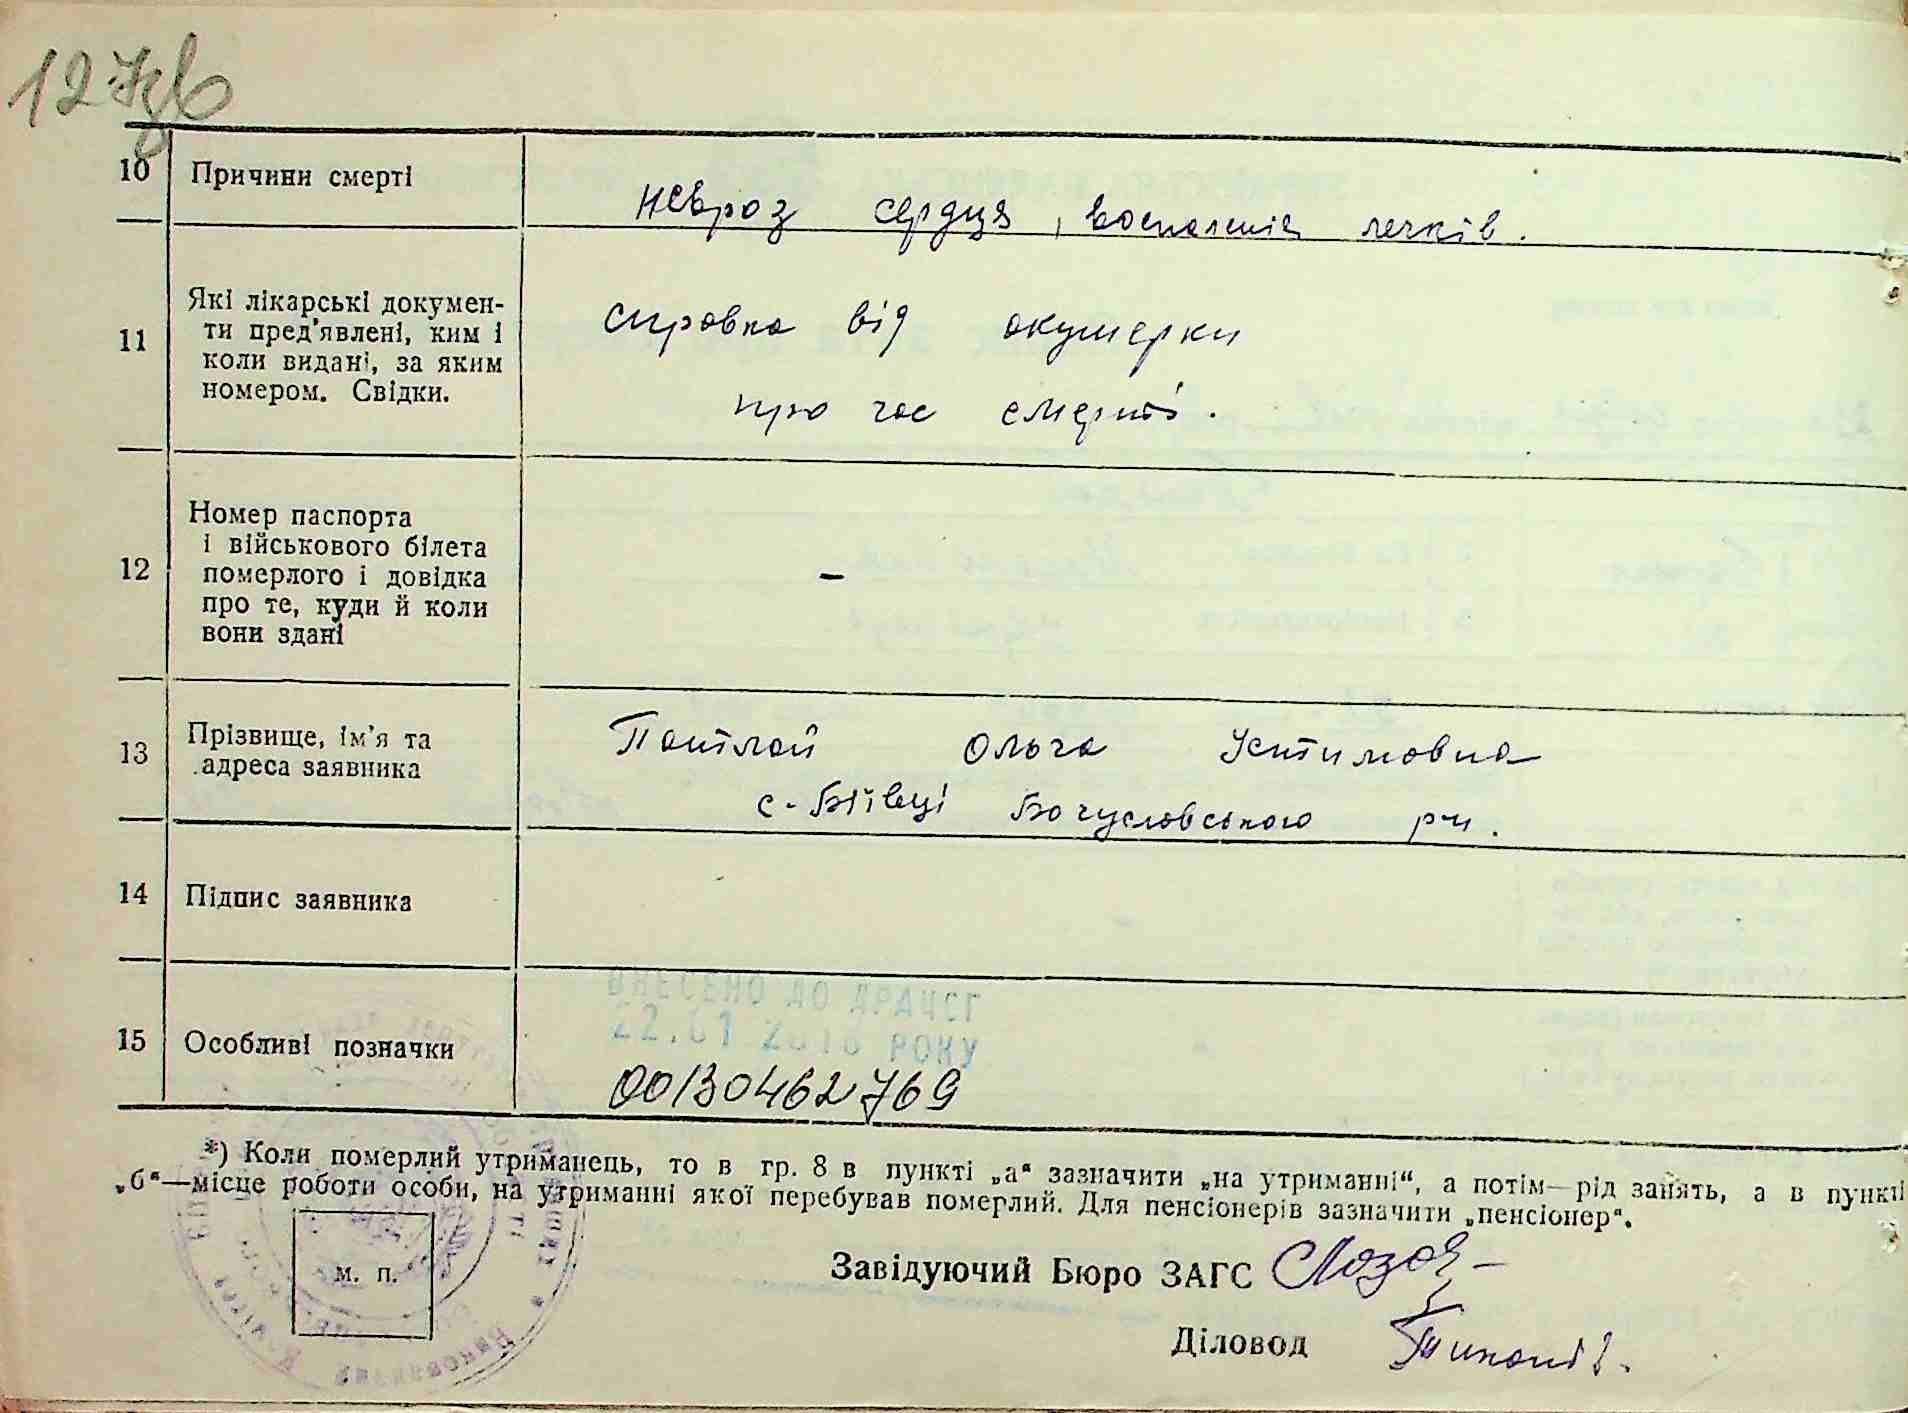 127зв
10 Причини смерті
невроз сердця, воспаленія легків.
11 Які лікарські докумен-
ти пред'явлені, ким і
коли видані, за яким
номером. Свідки.
справка від акушерки
про час смерті.
12 Номер паспорта
і військового білета
померлого і довідка
про те, куди й коли
вони здані
–
13 Прізвище, ім'я та
адреса заявника
Ольга Устимовна
с. Бiївці Богуславського р-н.
14 Підпис заявника
15 Особливі позначки
ВНЕСЕНО ДО ДРАЦСГ
22.01 РОКУ
00130462769
*) Коли померлий утриманець, то в гр. 8 в пункті „а“ зазначити „на утриманні“, а потім—рід занять, а в пункті
„б“—місце роботи особи, на утриманні якої перебував померлий. Для пенсіонерів зазначити „пенсіонер“.
м. п.
Завідуючий Бюро ЗАГС
Діловод